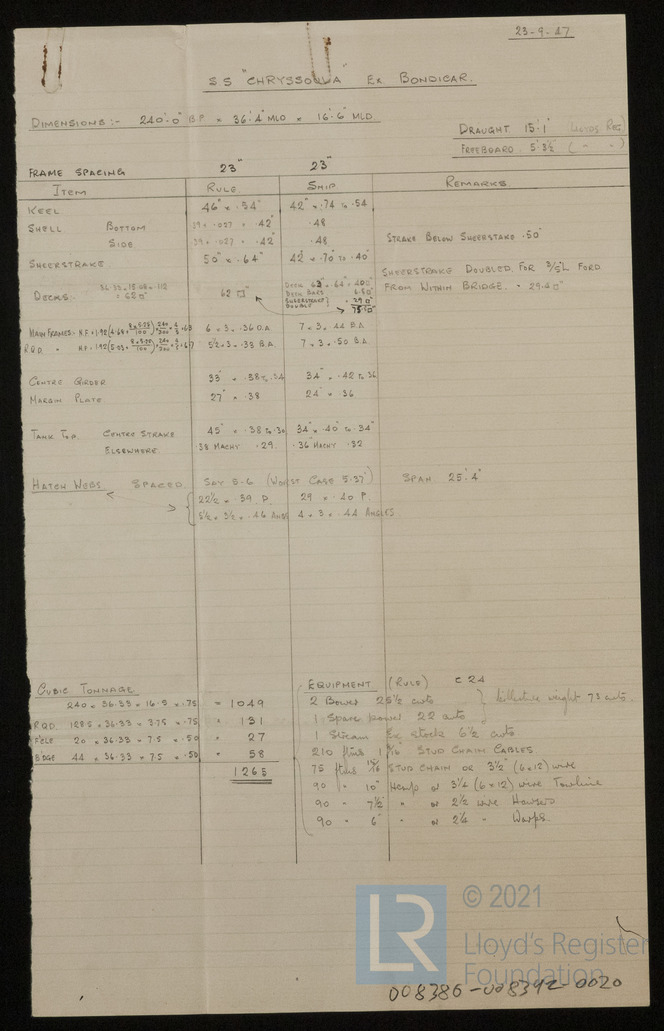 23-9-47
SS "CHRYSSOULA" Ex BONDICAR.
DIMENSIONS:- 240'.0" B.P. × 36'.4" MLD × 16'.6" MLD.
DRAUGHT 15'.1" (LLOYDS REG)
FREEBOARD 5'.8½ ( " " )
FRAME SPACING 23" 23"
ITEM RULE. SHIP REMARKS.
KEEL 46" × .54" 42" × .74 to .54
SHELL BOTTOM 39 × .027 × .42" .48
SIDE 39 × .027 × .42" .48 STRAKE BELOW SHEERSTRAKE .50"
SHEERSTRAKE 50" × .64" 42" × .70" to .40"
SHEERSTRAKE DOUBLED FOR 3/5 L FORD
FROM WITHIN BRIDGE. = 29.40"
DECKS:- = 62□" 62□"
75.□"
MAIN FRAMES: 6 × 3 × .36 O.A. 7 × 3 × .44 B.A.
R.Q.D. " 5½ × 3 × .38 B.A. 7 × 3 × .50 B.A.
CENTRE GIRDER 33" × .38 to .34 34" × .42 to .36
MARGIN PLATE 27" × .38 24" × .36
TANK TOP. CENTRE STRAKE 45" × .38 to .30 34" × .40" to .34"
ELSEWHERE. .38 MACHY .29. .36" MACHY .32
HATCH WEBS SPACED. SAY 5.6 (WORST CASE 5.37') SPAN. 25'.4"
22½ × .39 P. 29 × .40 P.
5½ × 3½ × .46 ANGS 4 × 3 × .44 ANGLES
CUBIC TONNAGE
240 × 36.33 × 16.5 × .75 = 1049
R.Q.D. 128.5 × 36.33 × 3.75 × .75 = 131
F'CLE 20 × 36.33 × 7.5 × .50 = 27
BDGE 44 × 36.33 × 7.5 × .50 = 58
1265
EQUIPMENT (RULE) C 24
2 Bower 25½ cwts } Collective weight 73 cwts.
1 Spare power 22 cwts
1 Stream Ex stock 6½ cwts
210 fths 1 9/16" STUD CHAIN CABLES
75 fths 15/16 STUD CHAIN OR 3½" (6×12) wire
90 " 10" Hemp or 3¼ (6×12) wire Towline
90 " 7½" " or 2½ wire Hawsers
90 " 6" " or 2¼ " Warps.
LR
© 2021
Lloyd's Register
Foundation
008386-008392-0020